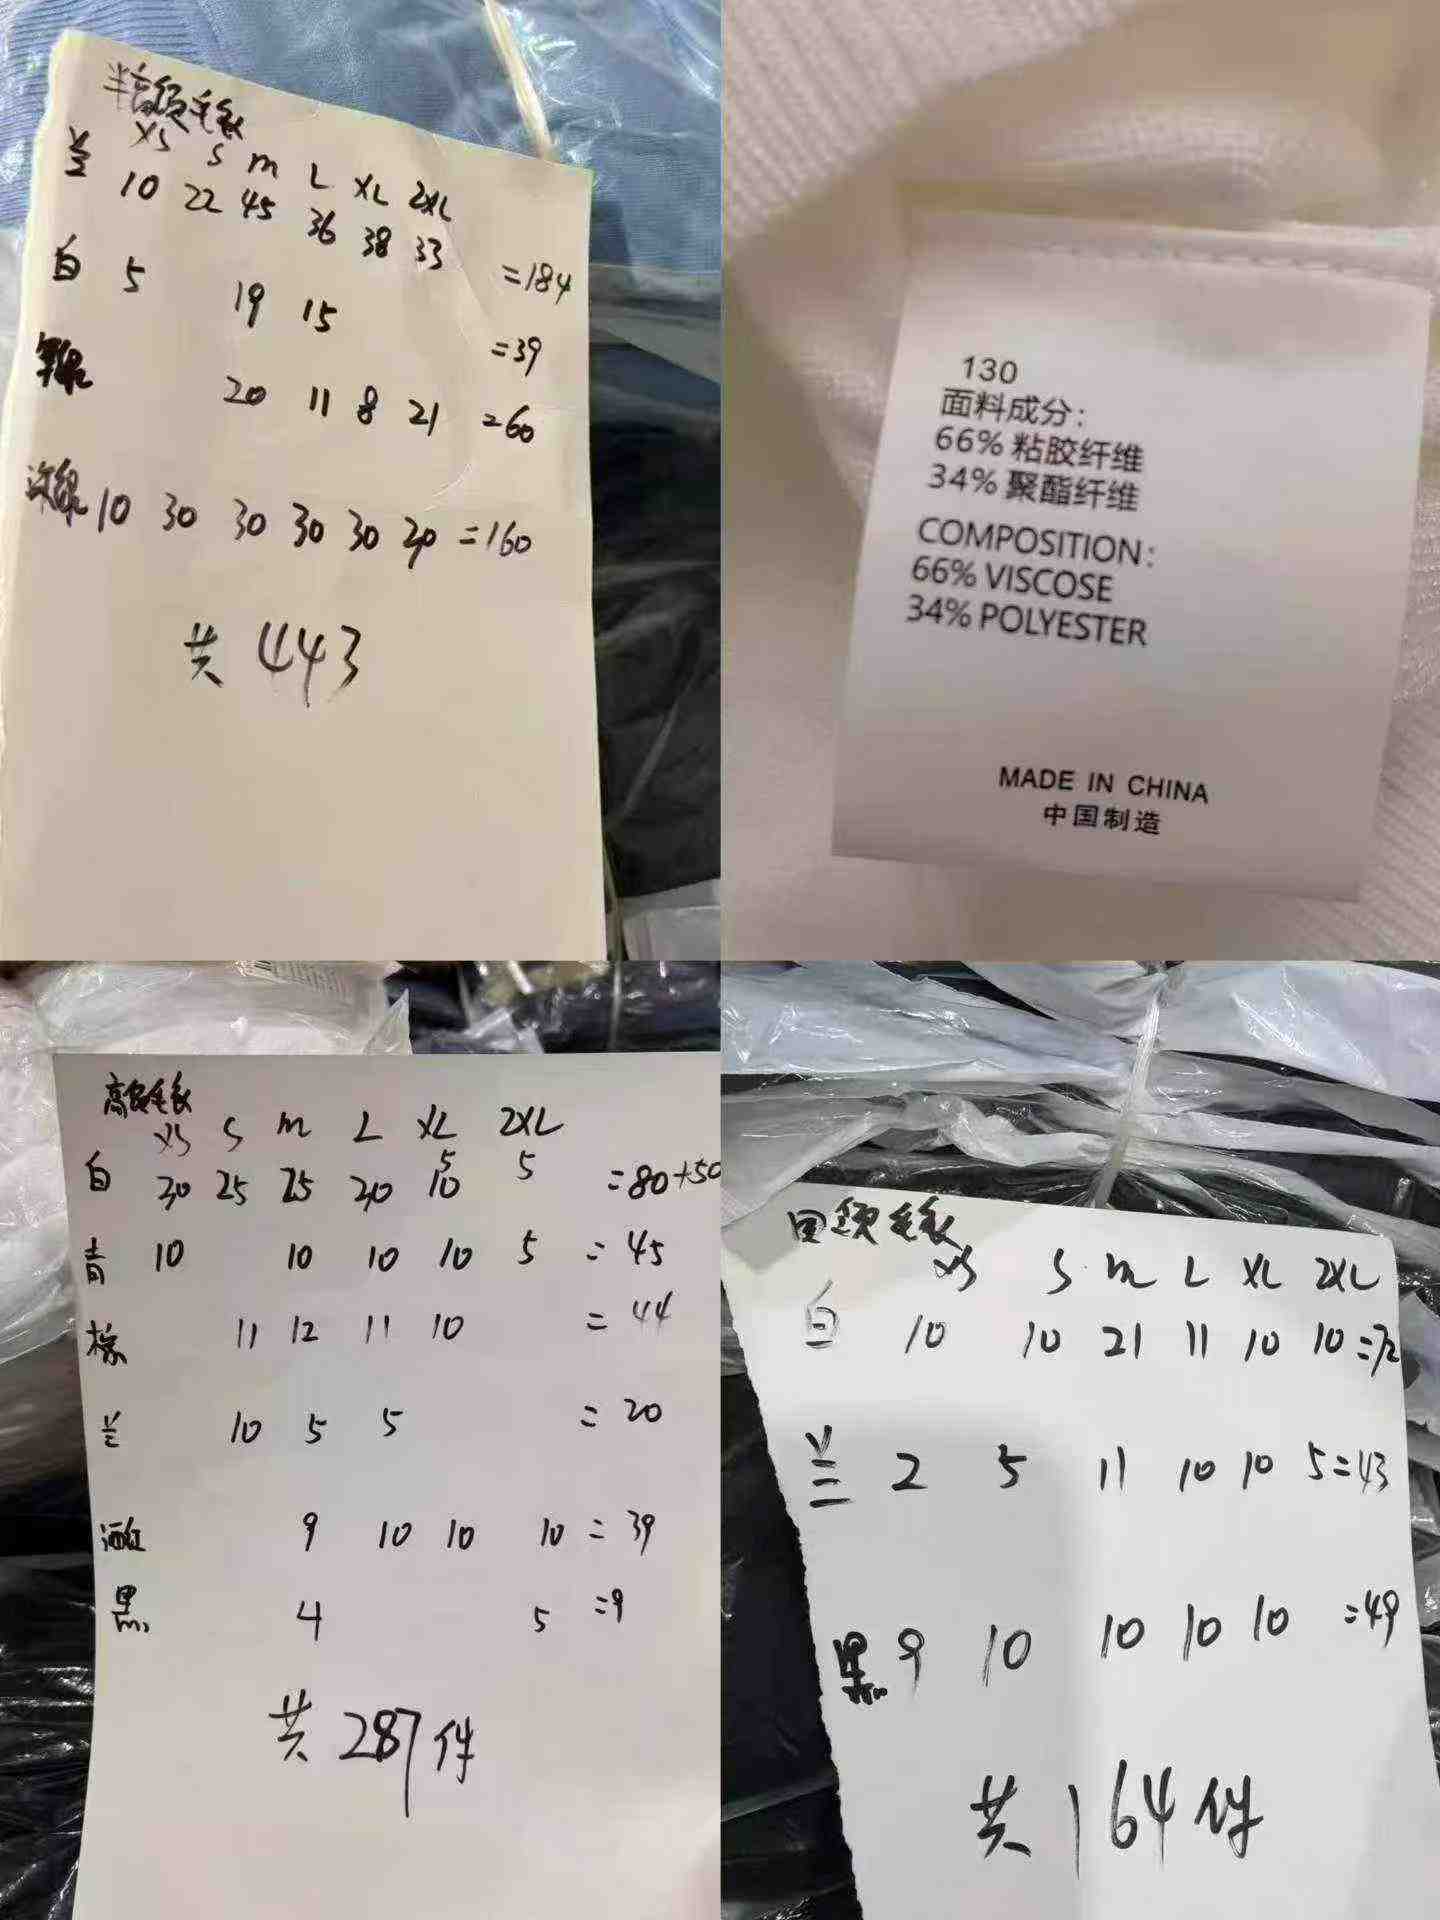 半高领毛衣
XS S m L XL 2XL
兰 10 22 45 36 38 33 =184
白 5 19 15 =39
20 11 8 21 =60
10 30 30 30 30 30 =160
共 443
130
面料成分：
66% 粘胶纤维
34% 聚酯纤维
COMPOSITION：
66% VISCOSE
34% POLYESTER
MADE IN CHINA
中国制造
高领毛衣
XS S m L XL 2XL
5 5
白 30 25 25 20 10 =80+50
青 10 10 10 10 5 = 45
棕 11 12 11 10 = 44
兰 10 5 5 = 20
酒红 9 10 10 10 = 39
黑 4 5 =9
共 287件
毛衣
XS S m L XL 2XL
白 10 10 21 11 10 10 =72
兰 2 5 11 10 10 5=43
黑 9 10 10 10 10 =49
共 164件